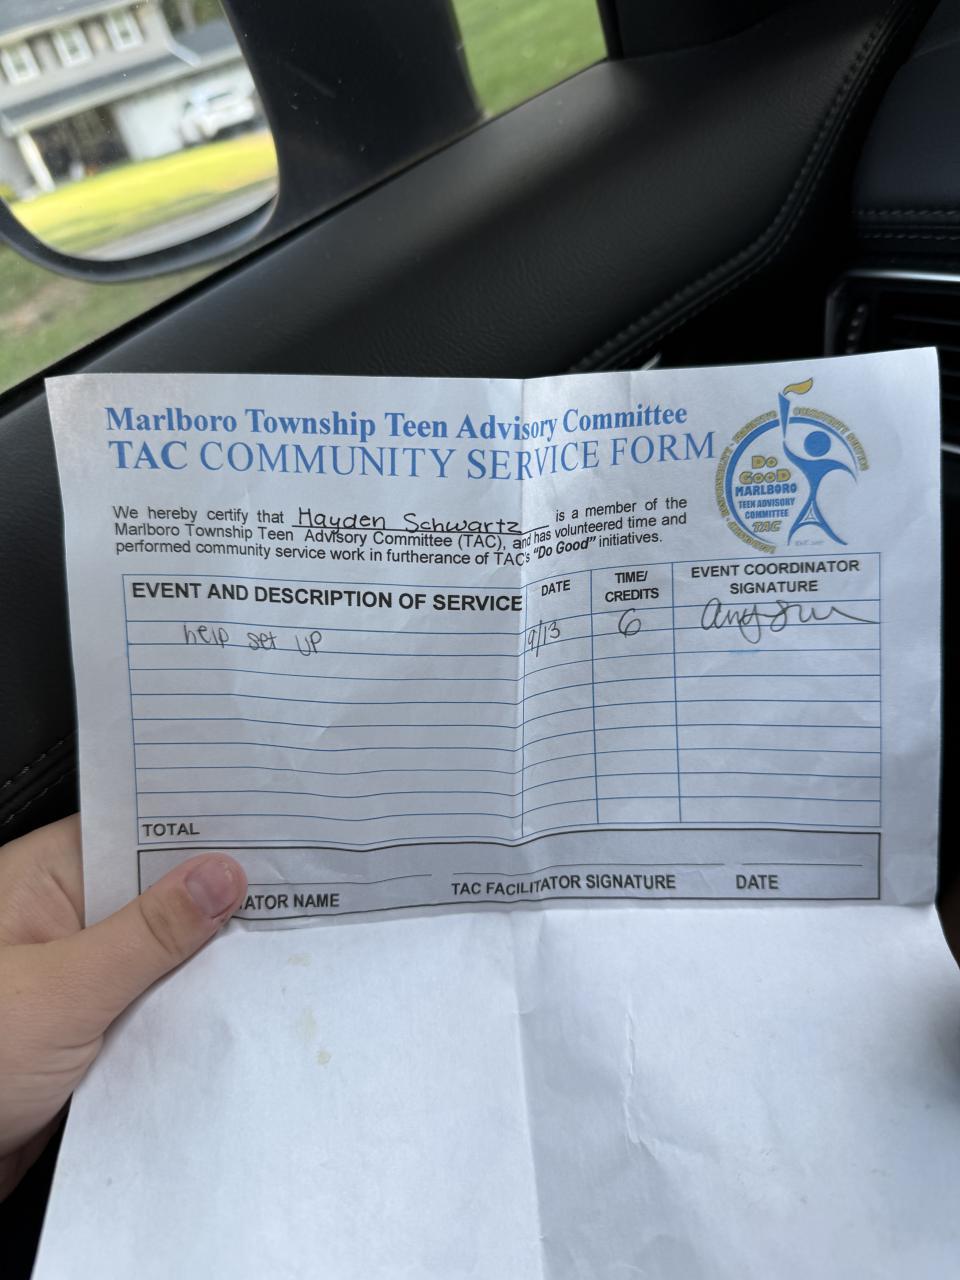 Marlboro Township Teen Advisory Committee
TAC COMMUNITY SERVICE FORM
We hereby certify that Hayden Schwartz is a member of the
Marlboro Township Teen Advisory Committee (TAC), and has volunteered time and
performed community service work in furtherance of TAC's "Do Good" initiatives.
Do
GooD
MARLBORO
TEEN ADVISORY
COMMITTEE
TAC
EVENT AND DESCRIPTION OF SERVICE
DATE
TIME/
CREDITS
EVENT COORDINATOR
SIGNATURE
help set up
9/13
6
TOTAL
ATOR NAME
TAC FACILITATOR SIGNATURE
DATE